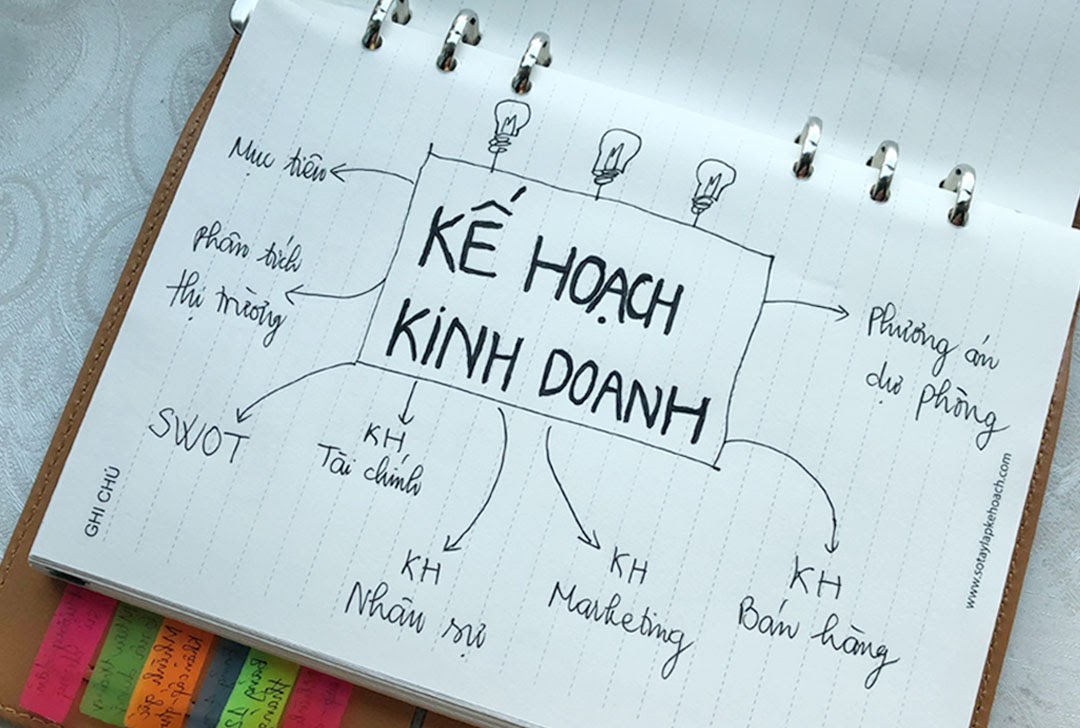 KẾ HOẠCH
KINH DOANH
Mục tiêu
phân tích
thị trường
SWOT
KH
Tài chính
KH
Nhân sự
KH
Marketing
KH
Bán hàng
Phương án
dự phòng
GHI CHÚ
www.sotaylapkehoach.com